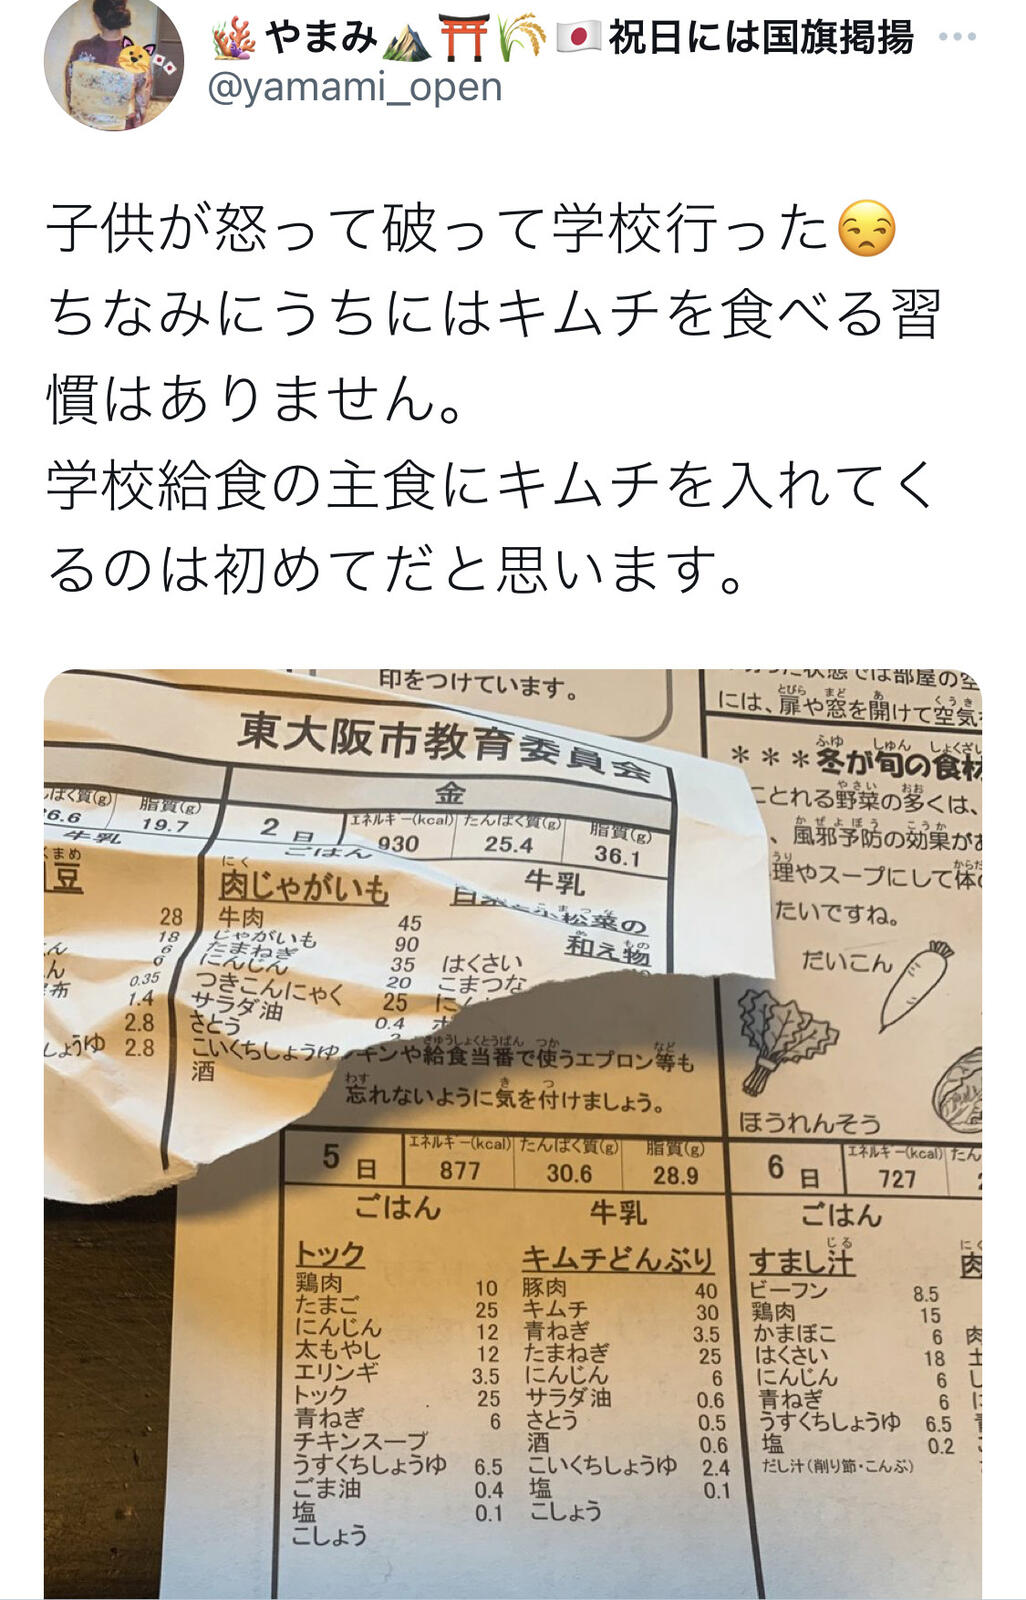 やまみ 祝日には国旗掲揚
@yamami_open
子供が怒って破って学校行った
ちなみにうちにはキムチを食べる習
慣はありません。
学校給食の主食にキムチを入れてく
るのは初めてだと思います。
印をつけています。
には、扉や窓を開けて空気
東大阪市教育委員会
金
ぱく質(g) 脂質(g)
6.6 19.7
牛乳
2日 エネルギー(kcal) たんぱく質(g) 脂質(g)
930 25.4 36.1
ごはん 牛乳
まめ
豆
28
18
ん 6
ん 6
布 0.35
1.4
2.8
しょうゆ 2.8
にく
肉じゃがいも
牛肉 45
じゃがいも 90
たまねぎ 35
にんじん 20
つきこんにゃく 25
サラダ油 0.4
さとう
こいくちしょうゆ
酒
松菜の
和え物
はくさい
こまつな
***冬が旬の食材
ふゆ しゅん しょくざい
とれる野菜の多くは、
風邪予防の効果が
理やスープにして体
たいですね。
だいこん
ほうれんそう
キンや給食当番で使うエプロン等も
忘れないように気を付けましょう。
5日 エネルギー(kcal) たんぱく質(g) 脂質(g)
877 30.6 28.9
ごはん 牛乳
トック
鶏肉 10
たまご 25
にんじん 12
太もやし 12
エリンギ 3.5
トック 25
青ねぎ 6
チキンスープ
うすくちしょうゆ 6.5
ごま油 0.4
塩 0.1
こしょう
キムチどんぶり
豚肉 40
キムチ 30
青ねぎ 3.5
たまねぎ 25
にんじん 6
サラダ油 0.6
さとう 0.5
酒 0.6
こいくちしょうゆ 2.4
塩 0.1
こしょう
6日 エネルギー(kcal) たん
727
ごはん
じる
すまし汁
ビーフン 8.5
鶏肉 15
かまぼこ 6
はくさい 18
にんじん 6
青ねぎ 6
うすくちしょうゆ 6.5
塩 0.2
だし汁(削り節・こんぶ)
にく
肉